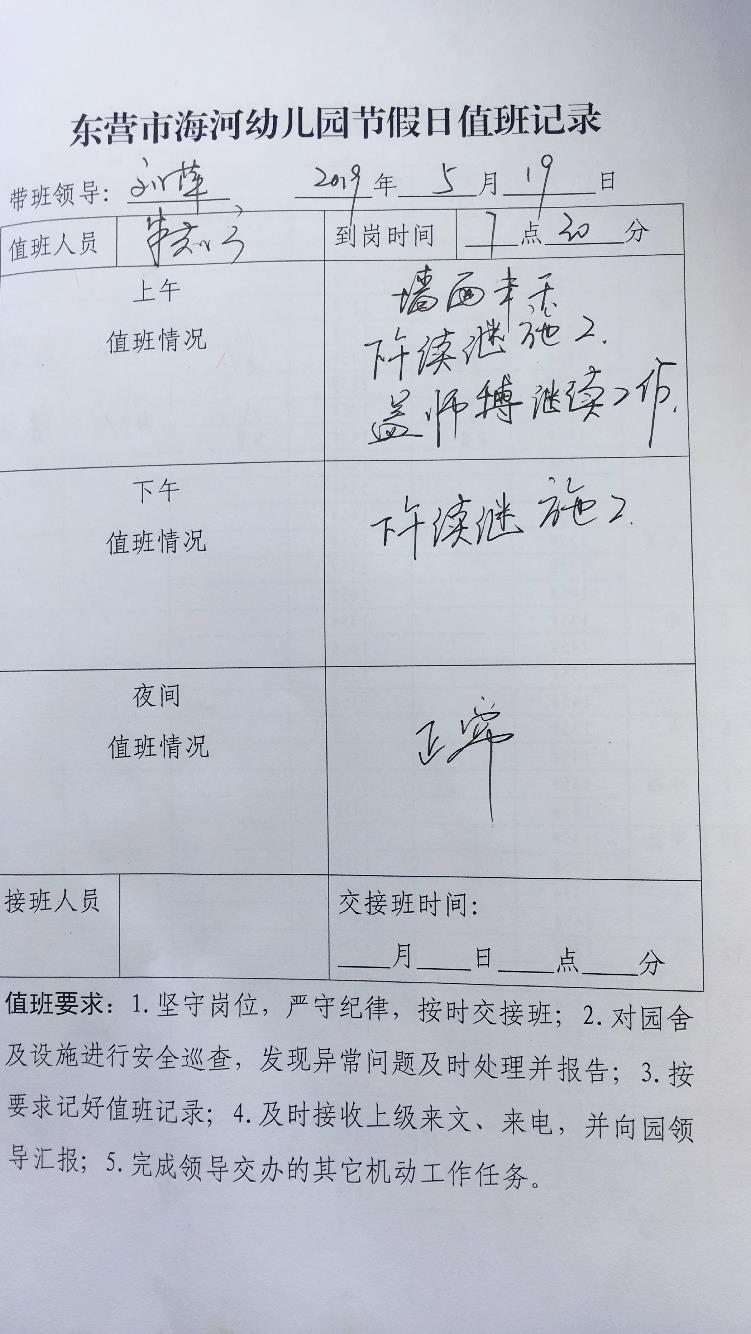 东营市海河幼儿园节假日值班记录
带班领导：刘萍 2019年 5月 19日
值班人员 到岗时间 7点30分
上午
值班情况
墙面
下午续继施工.
盖师搏继续工作.
下午
值班情况
下午续继施工.
夜间
值班情况
正常
接班人员 交接班时间：
____月____日____点____分
值班要求：1.坚守岗位，严守纪律，按时交接班；2.对园舍
及设施进行安全巡查，发现异常问题及时处理并报告；3.按
要求记好值班记录；4.及时接收上级来文、来电，并向园领
导汇报；5.完成领导交办的其它机动工作任务。